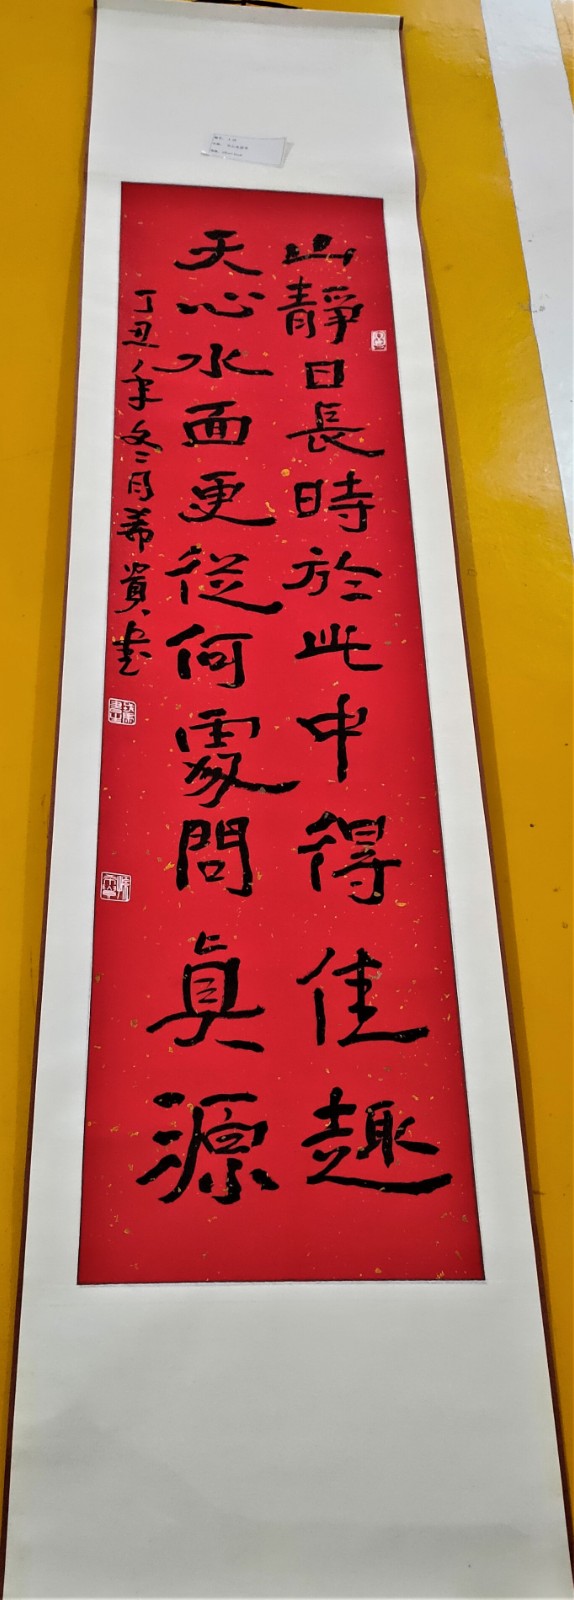 山靜日長時於此中得佳趣
天心水面更從何處問真源
丁丑年冬二月希貴書